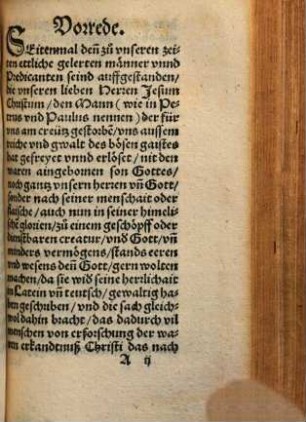 Vorrede.
SEitenmal deñ zů vnseren zei
ten ettliche gelerten männer vnnd
Predicanten seind auffgestanden/
die vnseren lieben Herren Jesum
Christum/den Mann (wie in Pe-
trus vnd Paulus nennen) der für
vns am creütz gestorbē/vns aussem
reiche vnd gwalt des bösen gaistes
hat gefreyet vnnd erlöset/nit den
waren aingebornen son Gottes/
noch gantz vnsern herren vñ Gott/
sonder nach seiner menschait oder
flaische/auch nun in seiner himeli-
schē glorien/zů einem geschöpff oder
dienstbaren creatur/vnd Gott/vñ
minders vermögens/stands eeren
vnd wesens deñ Gott/gern wolten
machen/da sie wid seine herrlichait
in Latein vñ teutsch/gewaltig ha-
ben geschuben/vnd die sach gleich-
wol dahin bracht/das dadurch vil
menschen von erforschung der wa-
ren erkandtniß Christi das nach
A ij